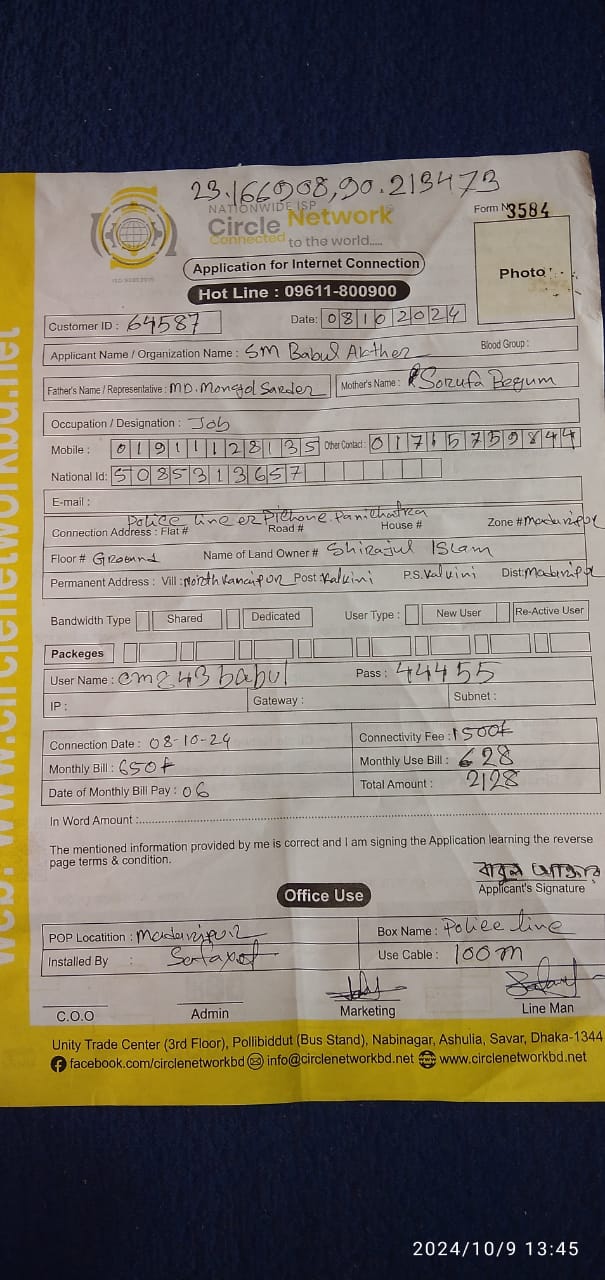 23.166908,90.213473
NATIONWIDE ISP
Circle Network
Connected to the world.....
Form № 3584
Application for Internet Connection
Photo
Hot Line : 09611-800900
Customer ID : 64587
Date: 08102024
Applicant Name / Organization Name : SM Babul Akther
Blood Group :
Father's Name / Representative : MD. Mongol Sarder
Mother's Name : Sorufa Begum
Occupation / Designation : Job
Mobile : 01911128135 Other Contact : 01715759844
National Id: 5085313657
E-mail :
Police line er Pichone. Panichatra
Connection Address : Flat # Road # House # Zone # Madaripur
Floor # Ground Name of Land Owner # Shirajul Islam
Permanent Address : Vill : Post : Kalkini P.S. Kalkini Dist: Madaripur
Bandwidth Type Shared Dedicated User Type : New User Re-Active User
Packeges
User Name : cm243babul Pass : 44455
IP : Gateway : Subnet :
Connection Date : 08-10-24 Connectivity Fee : 1500t
Monthly Bill : 650t Monthly Use Bill : 628
Date of Monthly Bill Pay : 06 Total Amount : 2128
In Word Amount :
The mentioned information provided by me is correct and I am signing the Application learning the reverse
page terms & condition.
বাবুল আক্তার
Applicant's Signature
Office Use
POP Locatition : Madaripur Box Name : Police line
Installed By : Use Cable : 100m
C.O.O Admin Marketing Line Man
Unity Trade Center (3rd Floor), Pollibiddut (Bus Stand), Nabinagar, Ashulia, Savar, Dhaka-1344
facebook.com/circlenetworkbd info@circlenetworkbd.net www.circlenetworkbd.net
web: www.circlenetworkbd.net
2024/10/9 13:45